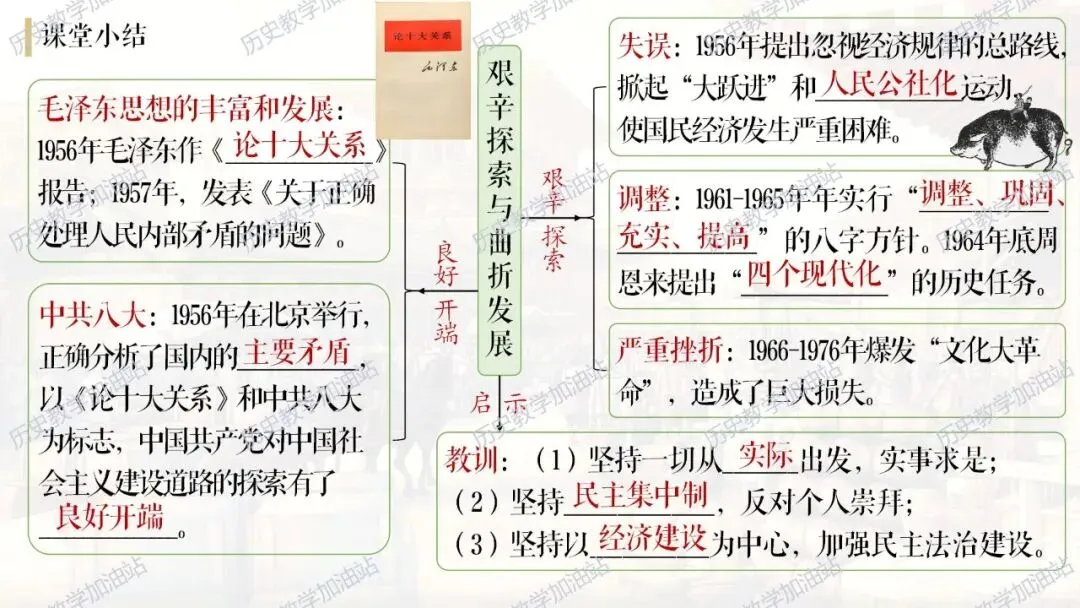 课堂小结
论十大关系
毛泽东
毛泽东思想的丰富和发展：
1956年毛泽东作《论十大关系》
报告；1957年，发表《关于正确
处理人民内部矛盾的问题》。
中共八大：1956年在北京举行，
正确分析了国内的主要矛盾，
以《论十大关系》和中共八大
为标志，中国共产党对中国社
会主义建设道路的探索有了
良好开端。
良好开端
艰辛探索与曲折发展
艰辛探索
失误：1956年提出忽视经济规律的总路线，
掀起“大跃进”和人民公社化运动，
使国民经济发生严重困难。
调整：1961-1965年年实行“调整、巩固、
充实、提高”的八字方针。1964年底周
恩来提出“四个现代化”的历史任务。
严重挫折：1966-1976年爆发“文化大革
命”，造成了巨大损失。
启示
教训：（1）坚持一切从实际出发，实事求是；
（2）坚持民主集中制，反对个人崇拜；
（3）坚持以经济建设为中心，加强民主法治建设。
历史教学加油站